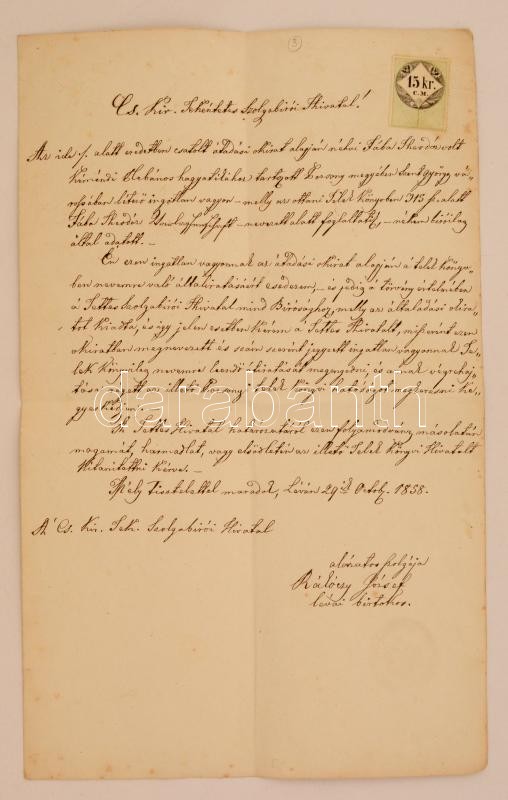 3
15 kr.
C.M.
Cs. Kir. Tekéntetes Szolgabirói Hivatal!
Az ide ·/. alatt eredetben csatolt átadási okirat alapján néhai Fába Theodor volt
Kéméndi Plebános hagyatékához tartozott Posony megyében Szent György vá-
rosában létező ingatlan vagyon – melly az ottani Telek Könyvben 315 sz. alatt
Fába Theodor nevezet alatt foglaltatik, – nékem biróilag
által adatott. –
Én ezen ingatlan vagyonnak az átadási okirat alapján a telek köny-
ben nevemre való általiratásáért esedezem, – és pedig a törvény értelmében
a Tettes Szolgabirói Hivatal mind Birósághoz, melly az általadási okira-
tot kiadta, és így jelen esetben kérem a Tettes Hivatalt, miszerint ezen
okiratban megnevezett és szám szerint jegyzett ingatlan vagyonnak Te-
lek Könyvileg nevemre leendő átiratását megengedni, és annak végrehaj-
tása végett az illető Posonyi telek könyvi hatóságot megkeresni ke-
gyeskedjen. –
A Tettes Hivatal határozatáról ezen folyamodvány másolatán
magamat, harmadlat, vagy elsődletén az illető Telek Könyvi Hivatalt
kitanittatni kérve. –
Mély tisztelettel maradok, Léván 29ik Octob. 1858.
A Cs. Kir. Tek. Szolgabirói Hivatal
alázatos szolgája
Rálóczy József
lévai birtokos.
darabanth